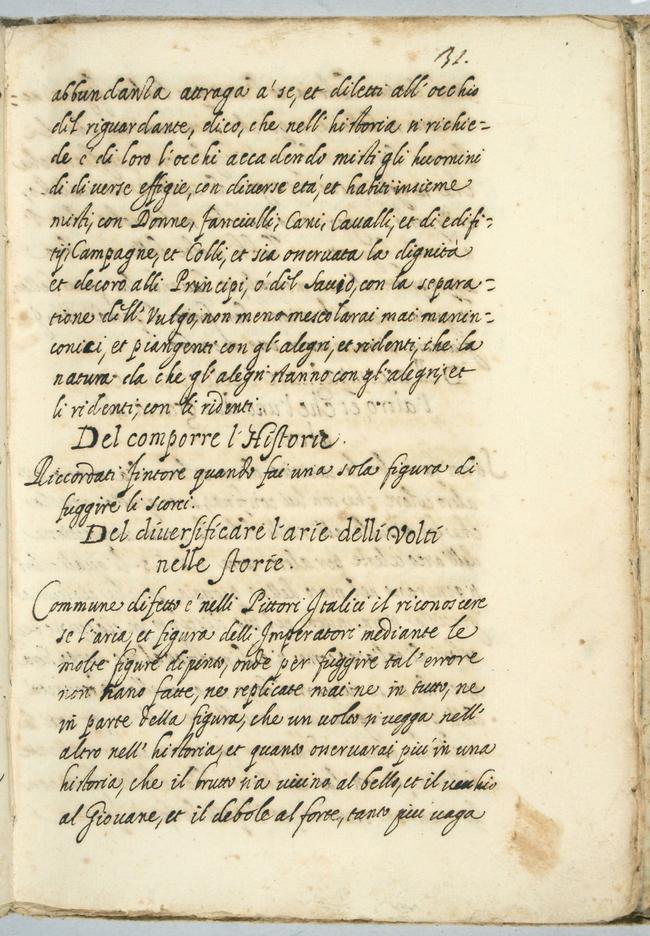 31.
abbundanza attraga a' se, et diletti all' occhio
dil riguardante, dico, che nell' historia si richie=
de e' di loro l'occhi accadendo misti gli huomini
di diverse effigie, con diverse età, et habiti insieme
misti, con Donne, fanciulli, Cani, Cavalli, et di edifi=
tij, Campagne, et Colli, et sia osservata la dignità
et decoro alli Principi, o' dil Savio, con la separa=
tione dill' Vulgo, non meno mescolarai mai manin=
conici, et piangenti con gl' alegri, et ridenti, che la
natura da che gl' alegri stanno con gl' alegri, et
li ridenti, con li ridenti
Del comporre l' Historie.
Riccordati Pintore quando fai una sola figura di
fuggire li scorci.
Del diversificare l'arie delli Volti
nelle storie.
Commune difetto e' nelli Pittori Italici il riconoscere
se l'aria, et figura delli Imperatori mediante le
molte figure dipinte, onde per fuggire tal' errore
non siano fatte, ne replicate mai ne in tutto, ne
in parte della figura, che un volto si vegga nell'
altro nell' historia, et quanto osservarai più in una
historia, che il brutto sia vicino al bello, et il vecchio
al Giovane, et il debole al forte, tanto più vaga